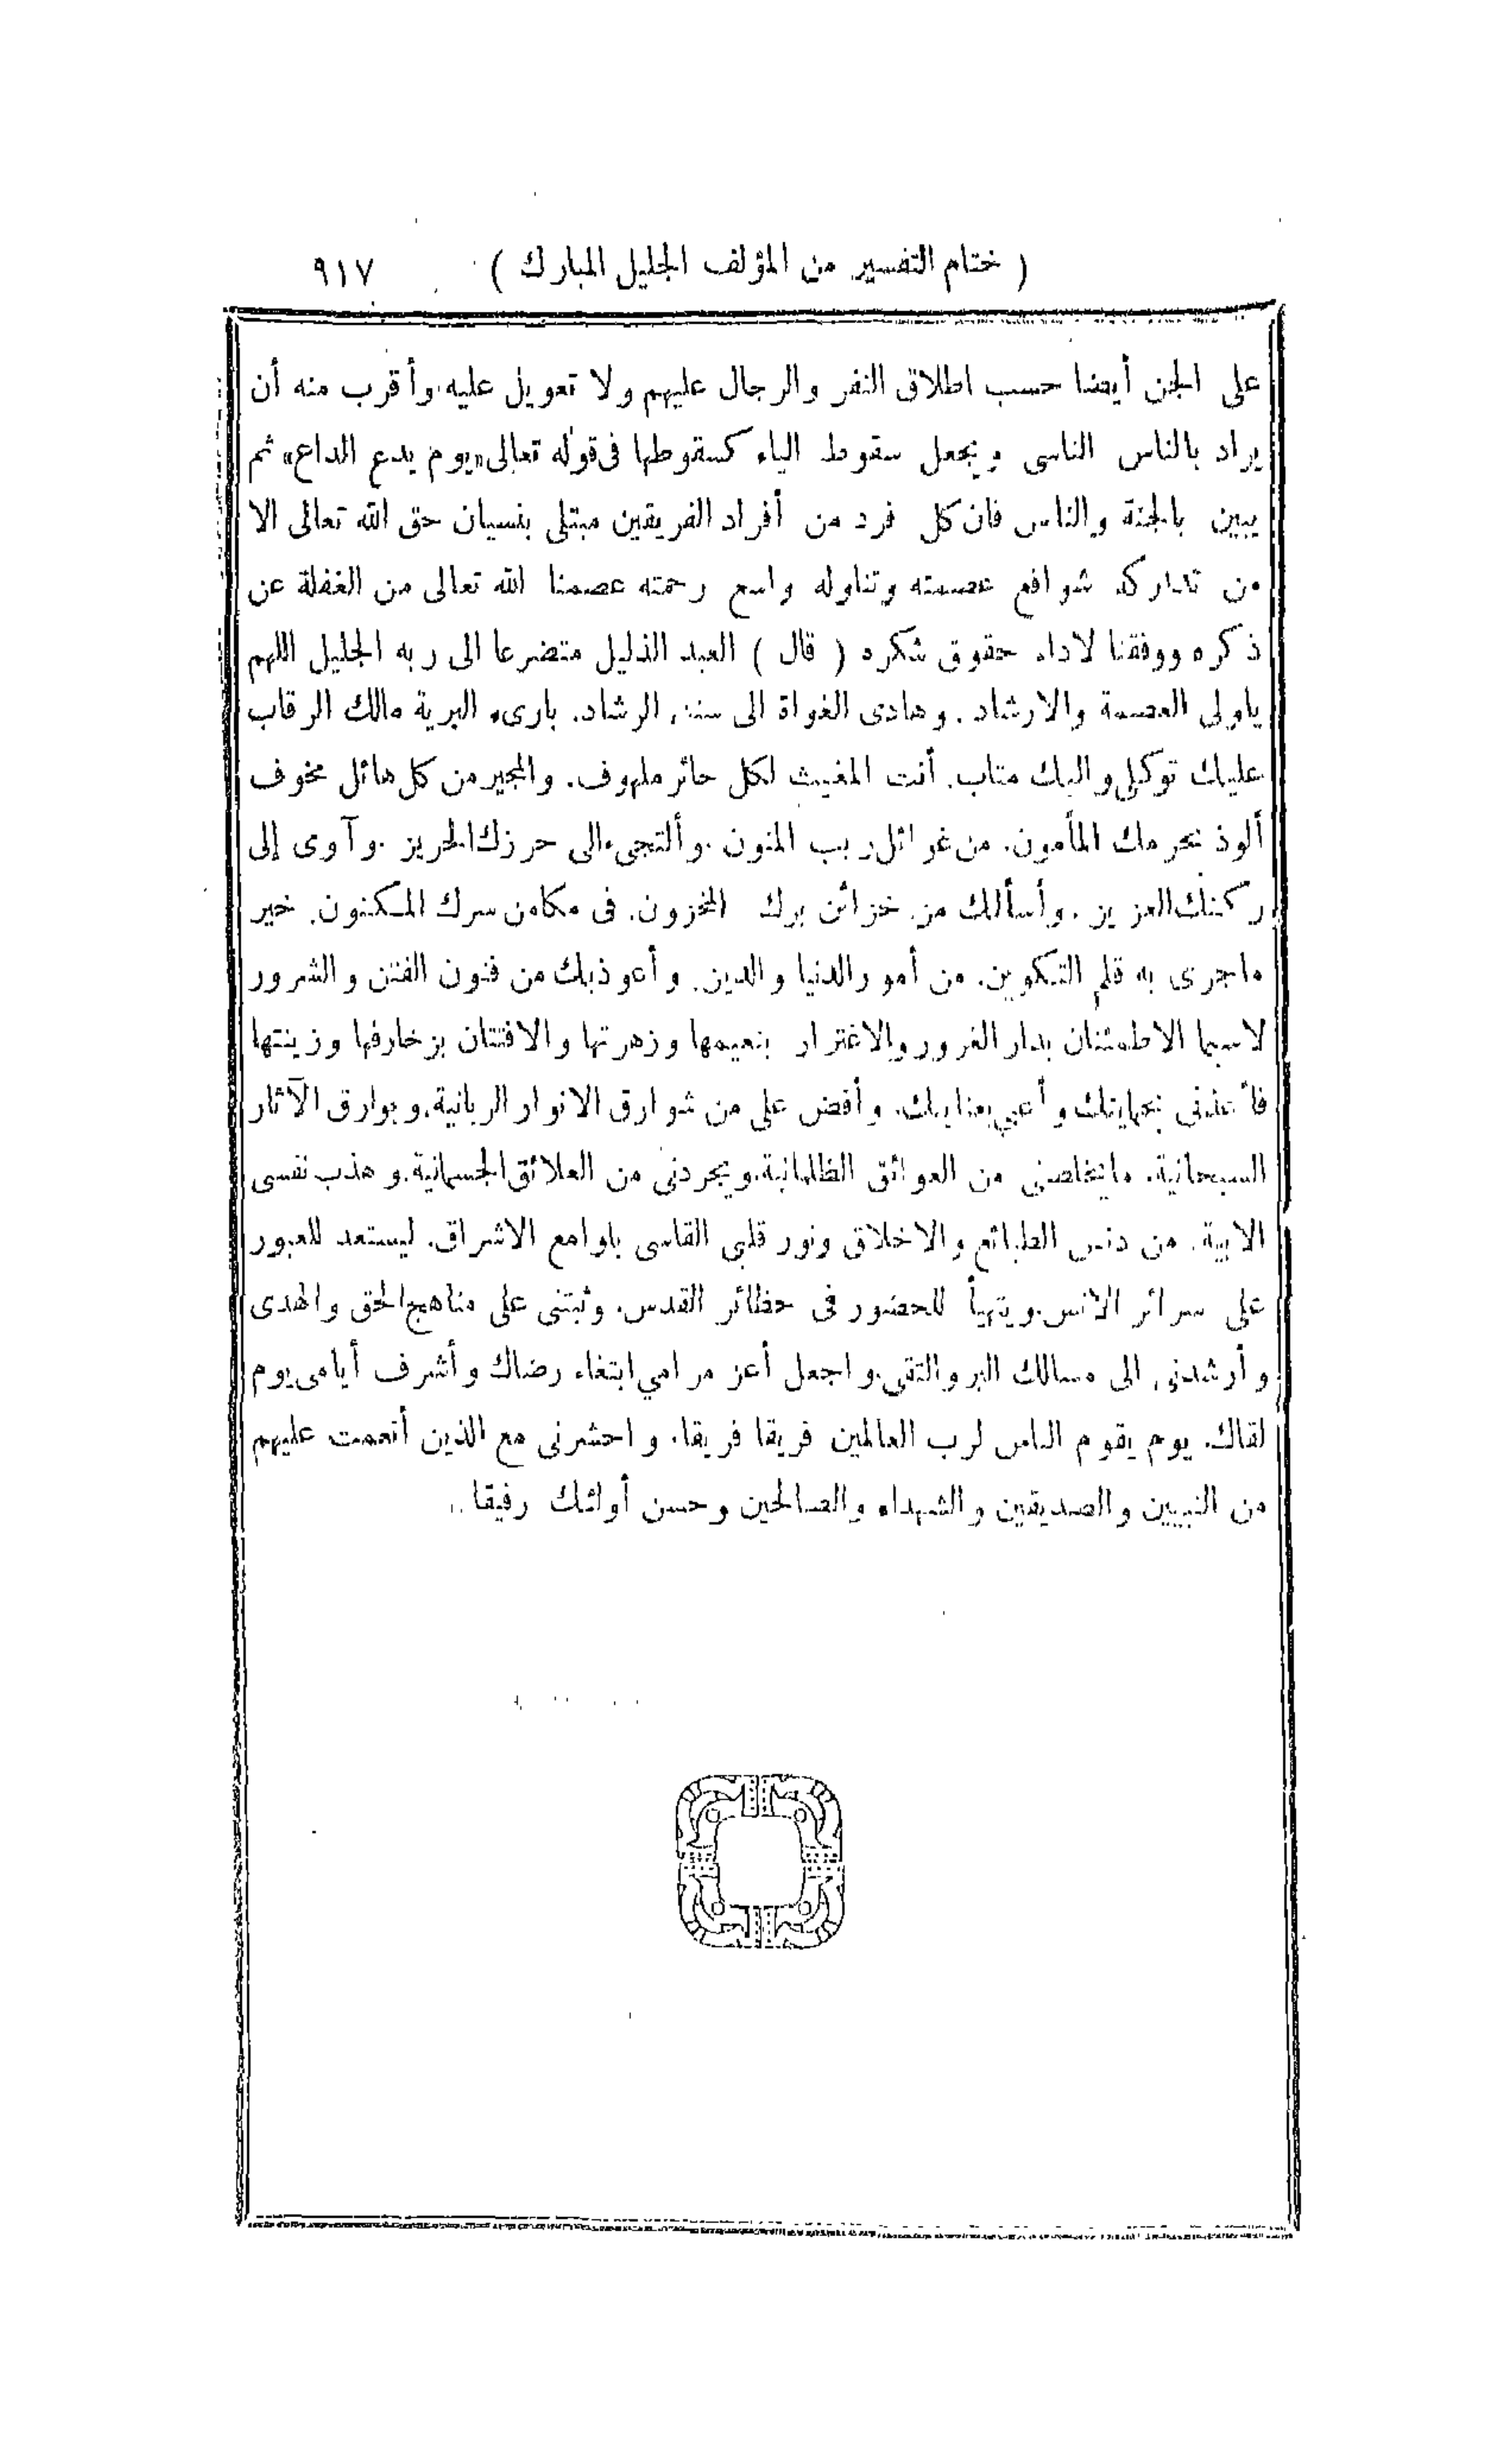 ( ختام التفسير من المؤلف الجليل المبارك ) ٩١٧
على الجن أيضا حسب اطلاق النفر والرجال عليهم ولا تعويل عليه وأقرب منه أن
يراد بالناس الناسى ويجعل سقوط الياء كسقوطها فى قوله تعالى «يوم يدع الداع» ثم
يبين بالجنة والناس فان كل فرد من أفراد الفريقين مبتلى بنسيان حق الله تعالى الا
من تداركه شوافع عصمته وتناوله واسع رحمته عصمنا الله تعالى من الغفلة عن
ذكره ووفقنا لاداء حقوق شكره ( قال ) العبد الذليل متضرعا الى ربه الجليل اللهم
ياولى العصمة والارشاد. وهادى الغواة الى سنن الرشاد. بارىء البرية مالك الرقاب
عليك توكلى واليك متاب. أنت المغيث لكل حائر ملهوف. والمجير من كل هائل مخوف
ألوذ بحرمك المأمون. من غوائل ريب المنون. وألتجىء الى حرزك الحريز. وآوى إلى
ركنك العزيز. وأسألك من خزائن برك المخزون. فى مكامن سرك المكنون. خير
ماجرى به قلم التكوين. من أمور الدنيا والدين. وأعوذ بك من فنون الفتن والشرور
لاسيما الاطمئنان بدار الغرور والاغترار بنعيمها وزهرتها والافتتان بزخارفها وزينتها
فأعذنى بحمايتك وأعنى بعنايتك. وأفض على من شوارق الانوار الربانية. وبوارق الآثار
السبحانية. مايخلصنى من العوائق الظلمانية. ويجردنى من العلائق الجسمانية. وهذب نفسى
الابية. من دنس الطبائع والاخلاق ونور قلبى القاسى بلوامع الاشراق. ليستعد للعبور
على سرائر الانس. ويتهيأ للحضور فى حظائر القدس. وثبتنى على مناهج الحق والهدى
وأرشدنى الى مسالك البر والتقى. واجعل أعز مرامي ابتغاء رضاك وأشرف أيامى يوم
لقاك. يوم يقوم الناس لرب العالمين فريقا فريقا. واحشرنى مع الذين أنعمت عليهم
من النبيين والصديقين والشهداء والصالحين وحسن أولئك رفيقا..